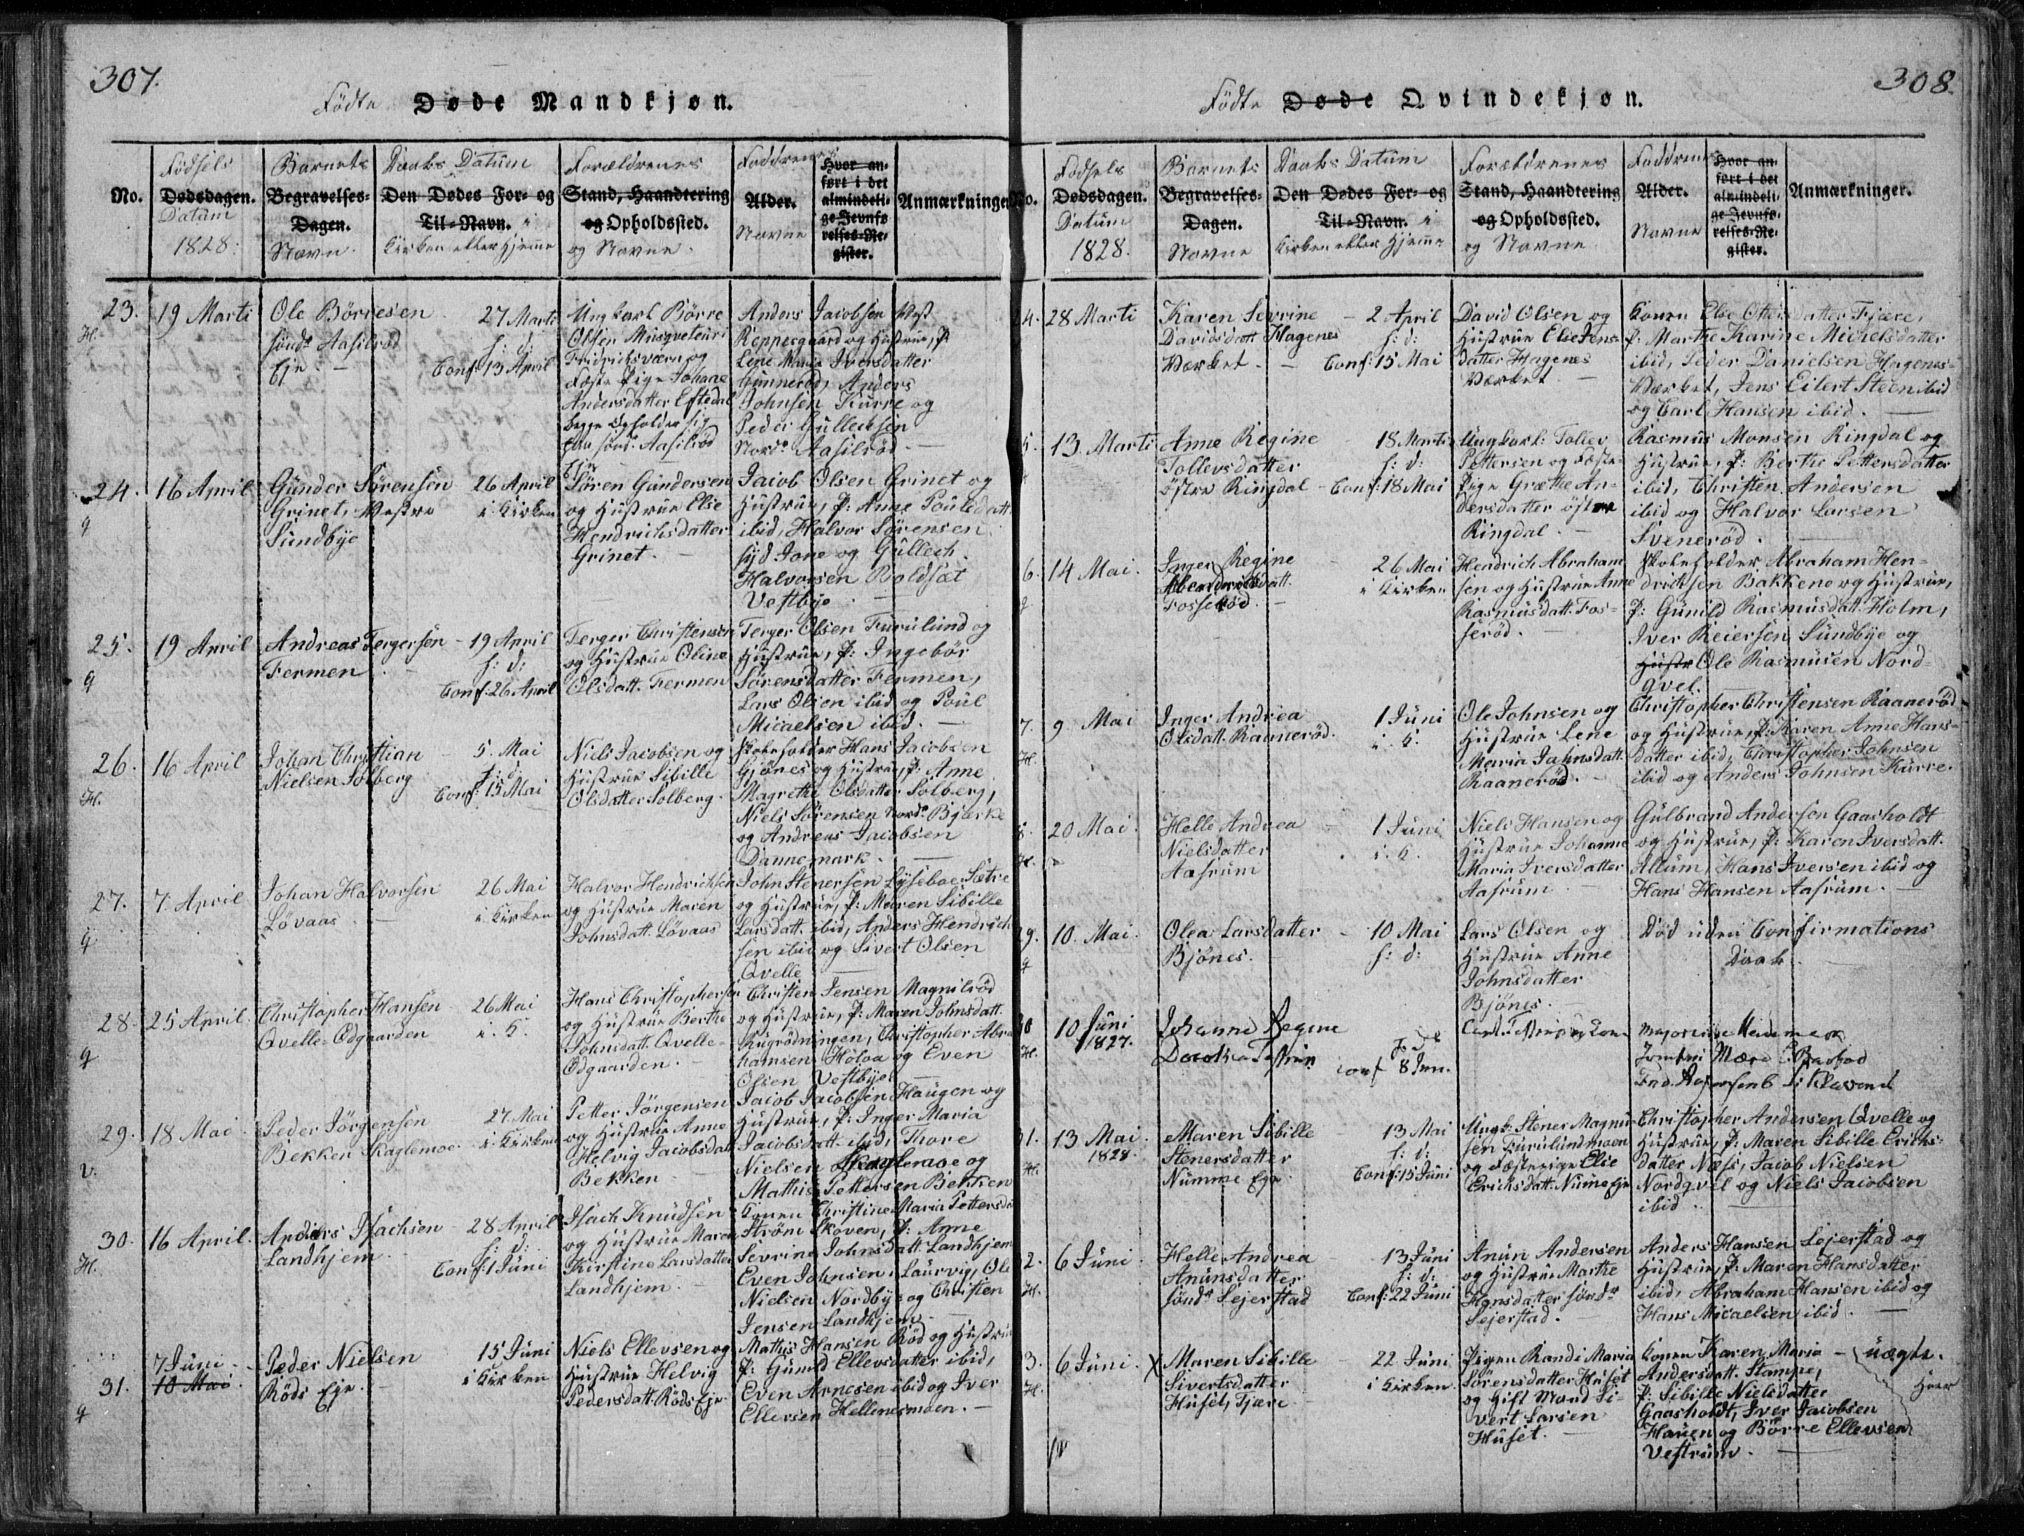 307.
Födte Døde Mandkjøn.
No.
Födsels
Dødsdagen.
Datum
1828.
Barnets
Begravelses-
Dagen.
Navn
Daabs Datum
Den Dødes For- og
Til-Navn. i
Kirken eller hjemme
Forældrenes
Stand, Haandtering
og Opholdssted.
og Navne.
Faddrenes
Alder.
Navne
Hvor an-
ført i det
almindeli-
ge Jevnfø-
relses-Re-
gister.
Anmærkninger
23.
H.
19 Marti
Ole Börresen
söndr Aasilröd
Eje.
27 Marti
h: d:
Conf. 13 April
Ungkarl Börre
Olsen Musqueteur i
Fridrichsværn og
Fæste Pige Johane
Andersdatter Eftedal
begge opholder sig
paa sönd: Aasilröd
Eje
Anders Jacobsen
Reppesgaard og Hustrue, P:
Lene Maria Iversdatter
Gunneröd, Anders
Johnsen Kurre og
Peder Gullechsen
Nord: Aasilröd
24.
g
16 April
Gunder Sörensen
Grinet, Westre
Sundbye
26 April
i Kirken
Sören Gundersen
og Hustrue Else
Hendrichsdatter
Grinet.
Jacob Olsen Grinet og
Hustrue, P: Anne Poulsdatt.
ibid, Halvor Sörensen
syd Jone og Gullech
Halvorsen Boldsæt
Vestbye.
25.
g
19 April
Andreas Tergersen
Fermen
19 April
h: d:
Conf. 26 April
Terger Christensen
og Hustrue Oline
Olsdatt. Fermen
Terger Olsen Furulund og
Hustrue, P: Ingebör
Sörensdatter Fermen,
Lars Olsen ibid og Poul
Micaelsen ibid.
26.
H.
16 April
Johan Christian
Nielsen Solberg
5. Mai
h: d:
Conf. 15 Mai
Niels Jacobsen og
Hustrue Sibille
Olsdatter Solberg.
Skoleholder Hans Jacobsen
Gjönes og Hustrue, P: Anne
Magrethe Olsdatter Solberg,
Niels Sörensen nord: Bjerke
og Andreas Jacobsen
Dannemark.
27.
g
7 April
Johan Halvorsen
Lövaas
26 Mai
i Kirken
Halvor Hendrichsen
og Hustrue Maren
Johnsdatt. Lövaas
John Stenersen Lyseboe Sætre
og Hustrue, P: Maren Sibille
Larsdatt. ibid, Anders Hendrich-
sen ibid og Sivert Olsen
Qvelle
28.
g
25 April
Christopher Hansen
Qvelle-Odgaarden
26 Mai
i. K.
Hans Christophersen
og Hustrue Berthe
Johnsdatt. Qvelle-
Odgaarden.
Christen Jensen Magnilröd
og Hustrue, P: Maren Johnsdatt.
Rugrödningen, Christopher Abra-
hamsen Holaa og Even
Olsen Vestbye
29.
v.
18 Mai
Peder Jörgensen
Bekken Skaglemoe
27. Mai
i Kirken
Petter Jörgensen
og Hustrue Anne
Helvig Jacobsdatt.
Bekken
Jacob Jacobsen Haugen og
Hustrue, P: Inger Maria
Jacobsdatt. ibid, Thore
Nielsen Skaglemoe og
Mathis Pettersen Bekken
30.
H.
16 April
Anders Isachsen
Landhjem
28 April
h: d:
Conf. 1 Juni
Isach Knudsen
og Hustrue Maren
Kirstine Larsdatter
Landhjem
Konen Christine Maria Pettersd.
Ström Skoven, P: Anne
Sevrine Johnsdatt. Landhjem
Even Johnsen, Laurvig, Ole
Nielsen Nordbye og Christen
Jensen Landhjem.
31.
g
7 Juni
10 Mai
Peder Nielsen
Röds Eje.
15 Juni
i Kirken
Niels Ellevsen og
Hustrue Helvig
Pedersdatt. Röds Eje
Mathis Hansen Röd og Hustrue
P: Gunild Ellevsdatter ibid,
Even Arnesen ibid og Iver
Ellevsen Hellenesmoen.
308.
Födte Døde Qvindekjøn.
No.
Födsels
Dødsdagen.
Datum
1828.
Barnets
Begravelses-
Dagen.
Navne
Daabs Datum
Den Dødes For- og
Til-Navn. i
Kirken eller hjemme
Forældrenes
Stand, Haandtering
og Opholdssted.
og Navne
Faddrenes
Alder.
Navne
Hvor an-
ført i det
almindeli-
ge Jevnfø-
relses-Re-
gister.
Anmærkninger.
4.
28 Marti
Karen Sevrine
Davidsdatt. Hagenes
Værket.
2 April
h: d:
Conf: 15 Mai
David Olsen og
Hustrue Else Jens-
datter Hagenes
Værket.
Konen Else Ottersdatter Fjære,
P: Marthe Karine Michelsdatter
ibid, Peder Danielsen Hagenes-
Værket, Jens Eilert Steen ibid
og Carl Hansen ibid.
5.
13. Marti
Anne Regine
Tollevsdatter
östre Ringdal
18 Marti
h: d:
Conf. 18 Mai
Ungkarl: Tollev
Pettersen og Fæste-
Pige Græthe An-
dersdatter östre
Ringdal.
Rasmus Monsen Ringdal og
Hustrue, P: Berthe Pettersdatter
ibid, Christen Andersen
ibid og Halvor Larsen
Sveneröd.
6.
g
14 Mai.
Inger Regine
Hendrichsdatt.
Fosseröd.
26 Mai
i Kirken
Hendrich Abraham-
sen og Hustrue Anne
Rasmusdatt. Fos-
seröd.
Skoleholder Abraham Hen-
drichsen Bakkene og Hustrue,
P: Gunild Rasmusdatt. Holm,
Iver Reiersen Sundbye og
Hustr Ole Rasmusen Nord-
qvel.
7.
H.
9 Mai
Inger Andrea
Olsdatt. Raaneröd.
1 Juni
i. K.
Ole Johnsen og
Hustrue Lene
Maria Jahnsdatt.
Raaneröd.
Christopher Christensen Raaneröd
og Hustrue, P: Karen Anne Hans-
datter ibid, Christopher Johnsen
ibid og Anders Johnsen Kurre.
8.
H.
20 Mai.
Helle Andrea
Nielsdatter
Aasrum
1 Juni
i. K.
Niels Hansen og
Hustrue Johanne
Maria Iversdatter
Aasrum
Gulbrand Andersen Gaasholt
og Hustrue, P: Karen Iversdatt.
Allum, Hans Iversen ibid og
Hans Hansen Aasrum.
29.
g
10. Mai.
Olea Larsdatter
Bjönes.
10 Mai
h: d:
Lars Olsen og
Hustrue Anne
Johnsdatter
Bjönes.
Död uden Confirmations
Daab.
30
H.
10 Juni
1827.
Johanne Regine
h. d.
conf 8 Jun.
31.
H.
13 Mai
1828.
Maren Sibille
Stenersdatter
Numme Eje
13 Mai
h: d:
Conf. 15 Juni
Ungk. Stener Magnu-
sen Furulundmoen
og Fæstepige Else
Erichsdatt. Nume Eje
Christopher Andersen Qvelle og
Hustrue, P: Maren Sibille Erichs-
datter Næss, Jacob Nielsen
Nordqvel og Niels Jacobsen
ibid.
2.
H.
6 Juni
Helle Andrea
Anunsdatter
söndr Sejerstad
13 Juni
h: d:
Conf: 22 Juni
Anun Andersen
og Hustrue Marthe
Hansdatter söndr
Sejerstad.
Anders Hansen Sejerstad og
Hustrue, P: Maren Hansdatter
ibid, Abraham Hansen ibid og
Hans Micaelsen ibid.
3.
H.
6 Juni.
X Maren Sibille
Sivertsdatter
Huset, Fjære
22 Juni
i Kirken.
Pigen Randi Maria
Sörensdatter Huset
og Gift Mand Si-
vert Larsen
Huset.
Konen Karen Maria
Andersdatt. Stampe,
P: Sibille Nielsdatter
Gaasholdt, Iver Jacobsen
Hauen og Börre Ellevsen
Vestrum.
uægte.
Hoer